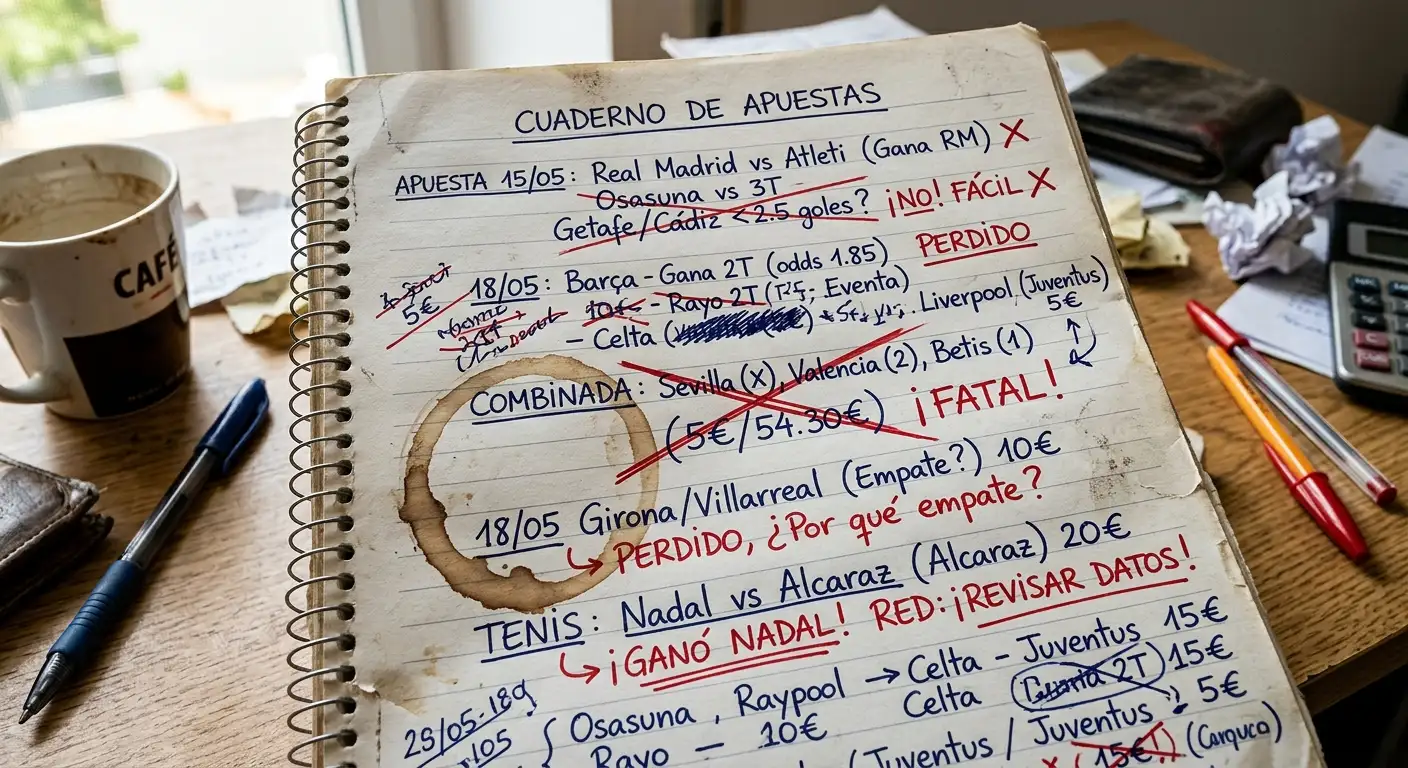 CUADERNO DE APUESTAS
APUESTA 15/05: Real Madrid vs Atleti (Gana RM) X
Osasuna vs 3T
Getafe/Cádiz <2.5 goles? ¡NO! FÁCIL X
PERDIDO
18/05: Barça - Gana 2T (odds 1.85)
5€
10€ - Rayo 2T Eventa)
- Celta ( Liverpool (Juventus)
5€
COMBINADA: Sevilla (X), Valencia (2), Betis (1)
(5€/54.30€) ¡FATAL!
18/05 Girona/Villarreal (Empate?) 10€
↳ PERDIDO, ¿Por qué empate?
TENIS: Nadal vs Alcaraz (Alcaraz) 20€
↳ ¡GANÓ NADAL! RED: ¡REVISAR DATOS!
Osasuna, Raypool → Celta - Juventus 15€
Rayo - 10€ Celta 2T) 15€
(Juventus / Juventus 5€
X (15€T) (Carquca)
CAFÉ